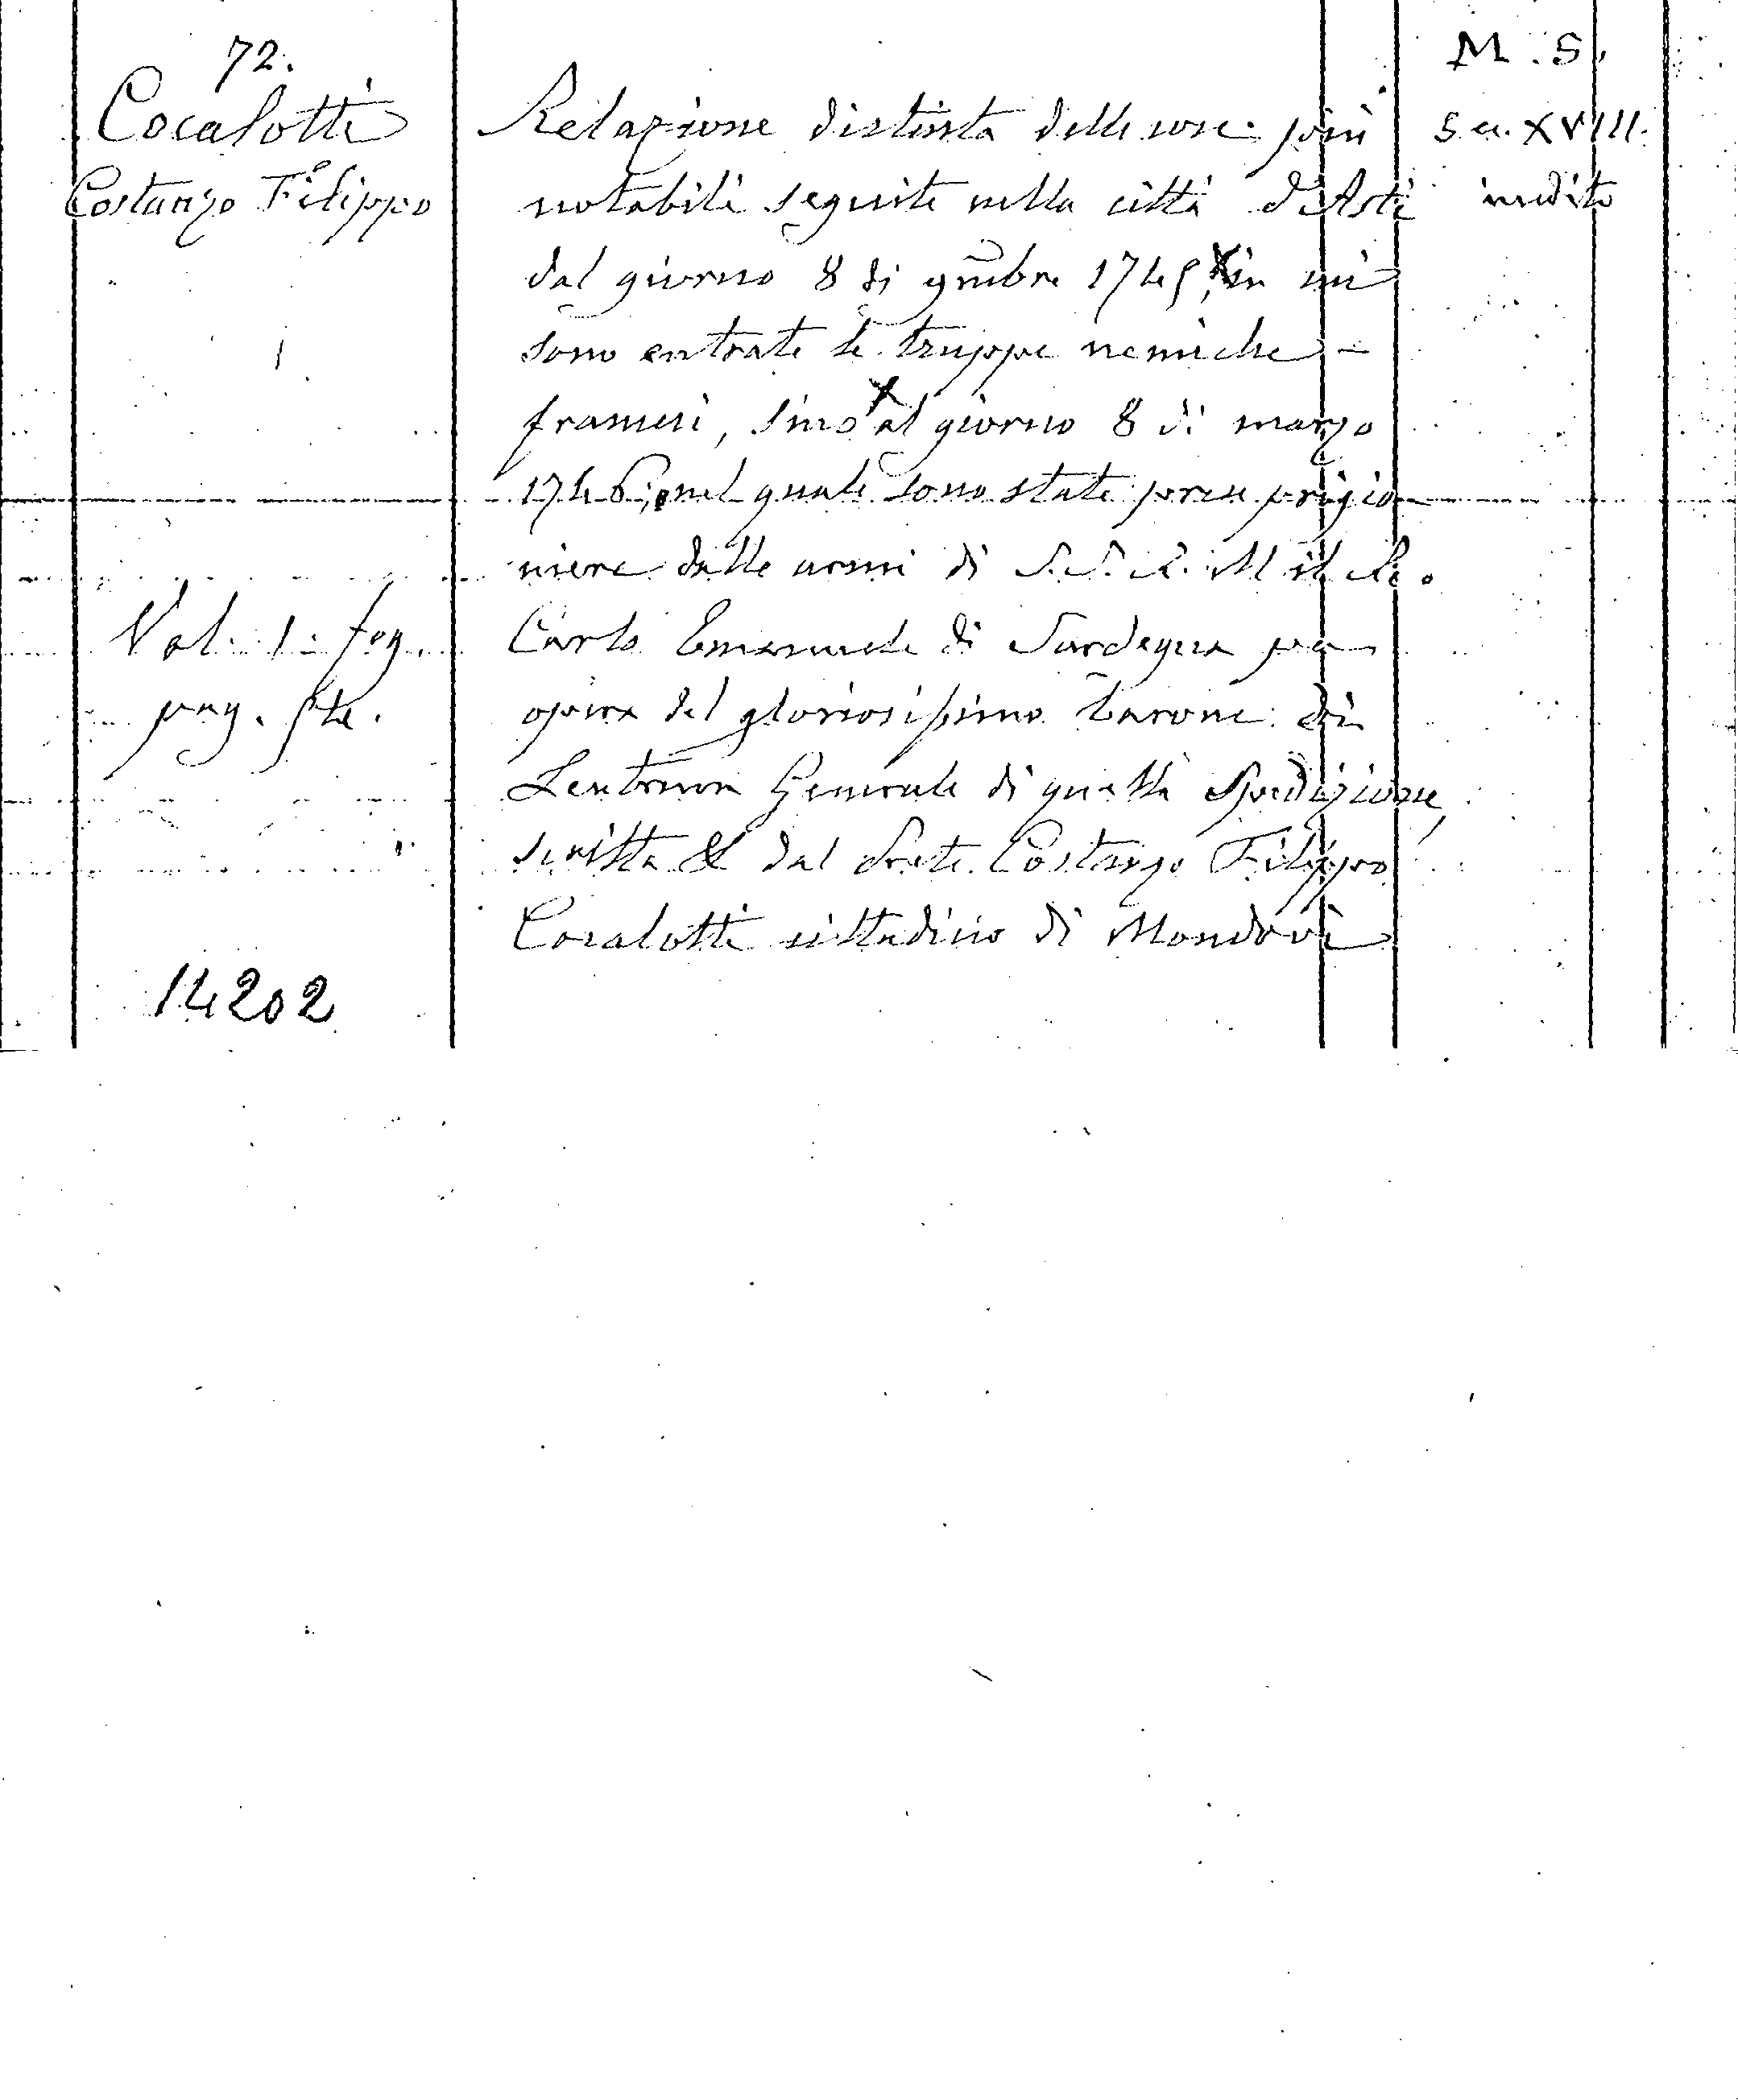 72.
Cocalotti
Costanzo Filippo
Vol. 1. fog.
pag. 54.
14202
Relazione distinta delle cose più
notabili seguite nella città d'Asti
dal giorno 8 di 9mbre 1745, in cui
sono entrate le truppe nemiche -
francesi, sino al giorno 8 di marzo
1746, nel quale sono state prese prigio-
niere dalle armi di S. S. R. M. il Re
Carlo Emanuele di Sardegna per
opera del gloriosissimo barone di
Leutron Generale di quella Spedizione,
scritta & dal Prete Costanzo Filippo
Cocalotti cittadino di Mondovì
M. S.
Sec. XVIII.
inedito